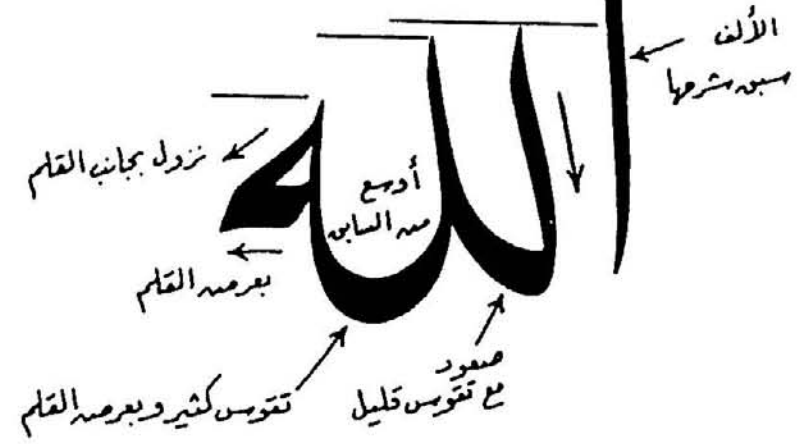 الله
الألف
سبق شرحها
نزول بجانب القلم
أوسع
من السابق
بعرض القلم
صعود
مع تقوس قليل
تقوس كثير وبعرض القلم